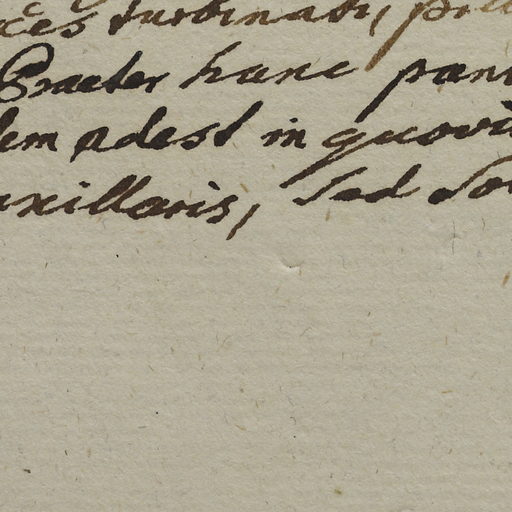 ces turbinati, pre
Praeter hunc pani
lem adest in quovi
axillaris, sed so